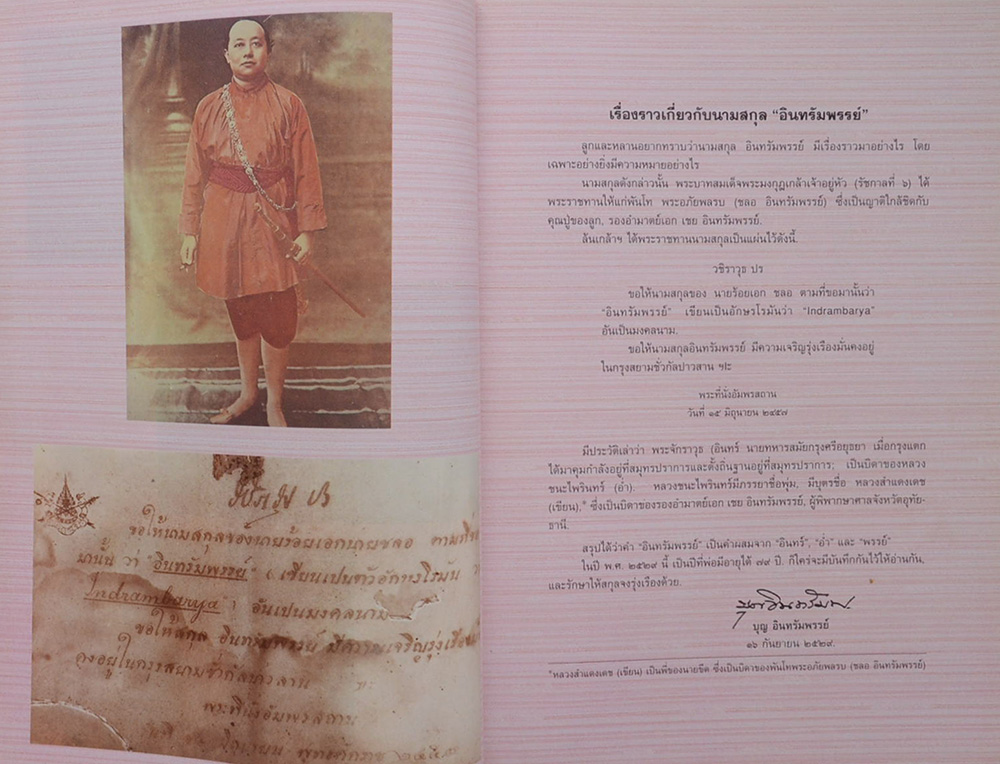 วชิราวุธ ปร
ขอให้นามสกุลของนายร้อยเอกนายชลอ ตามที่ขอ
มานั้น ว่า "อินทรัมพรรย์" (เขียนเปนตัวอักษรโรมัน ว่า
"Indrambarya", อันเปนมงคลนาม
ขอให้สกุล อินทรัมพรรย์ มีความเจริญรุ่งเรืองมั่น
คงอยู่ในกรุงสยามชั่วกัลปาวสาน
พระที่นั่งอัมพรสถาน
พุทธศักราช
เรื่องราวเกี่ยวกับนามสกุล “อินทรัมพรรย์”
ลูกและหลานอยากทราบว่านามสกุล อินทรัมพรรย์ มีเรื่องราวมาอย่างไร โดย
เฉพาะอย่างยิ่งมีความหมายอย่างไร
นามสกุลดังกล่าวนั้น พระบาทสมเด็จพระมงกุฎเกล้าเจ้าอยู่หัว (รัชกาลที่ ๖) ได้
พระราชทานให้แก่พันโท พระอภัยพลรบ (ชลอ อินทรัมพรรย์) ซึ่งเป็นญาติใกล้ชิดกับ
คุณปู่ของลูก, รองอำมาตย์เอก เชย อินทรัมพรรย์.
ล้นเกล้าฯ ได้พระราชทานนามสกุลเป็นแผ่นไว้ดังนี้.
วชิราวุธ ปร
ขอให้นามสกุลของ นายร้อยเอก ชลอ ตามที่ขอมานั้นว่า
“อินทรัมพรรย์” เขียนเป็นอักษรโรมันว่า “Indrambarya”
อันเป็นมงคลนาม.
ขอให้นามสกุลอินทรัมพรรย์ มีความเจริญรุ่งเรืองมั่นคงอยู่
ในกรุงสยามชั่วกัลปาวสาน ฯะ
พระที่นั่งอัมพรสถาน
วันที่ ๑๕ มิถุนายน ๒๔๕๗
มีประวัติเล่าว่า พระจักราวุธ (อินทร์ นายทหารสมัยกรุงศรีอยุธยา เมื่อกรุงแตก
ได้มาคุมกำลังอยู่ที่สมุทรปราการและตั้งถิ่นฐานอยู่ที่สมุทรปราการ; เป็นบิดาของหลวง
ชนะไพรินทร์ (อ่ำ). หลวงชนะไพรินทร์มีภรรยาชื่อพุ่ม, มีบุตรชื่อ หลวงสำแดงเดช
(เขียน),* ซึ่งเป็นบิดาของรองอำมาตย์เอก เชย อินทรัมพรรย์, ผู้พิพากษาศาลจังหวัดอุทัย-
ธานี.
สรุปได้ว่าคำ “อินทรัมพรรย์” เป็นคำผสมจาก “อินทร์”, “อ่ำ” และ “พรรย์”
ในปี พ.ศ. ๒๕๒๙ นี้ เป็นปีที่พ่อมีอายุได้ ๗๙ ปี. ก็ใคร่จะมีบันทึกกันไว้ให้อ่านกัน,
และรักษาให้สกุลจงรุ่งเรืองด้วย.
บุญ อินทรัมพรรย์
๑๖ กันยายน ๒๕๒๙.
*หลวงสำแดงเดช (เขียน) เป็นพี่ของนายขีด ซึ่งเป็นบิดาของพันโทพระอภัยพลรบ (ชลอ อินทรัมพรรย์)